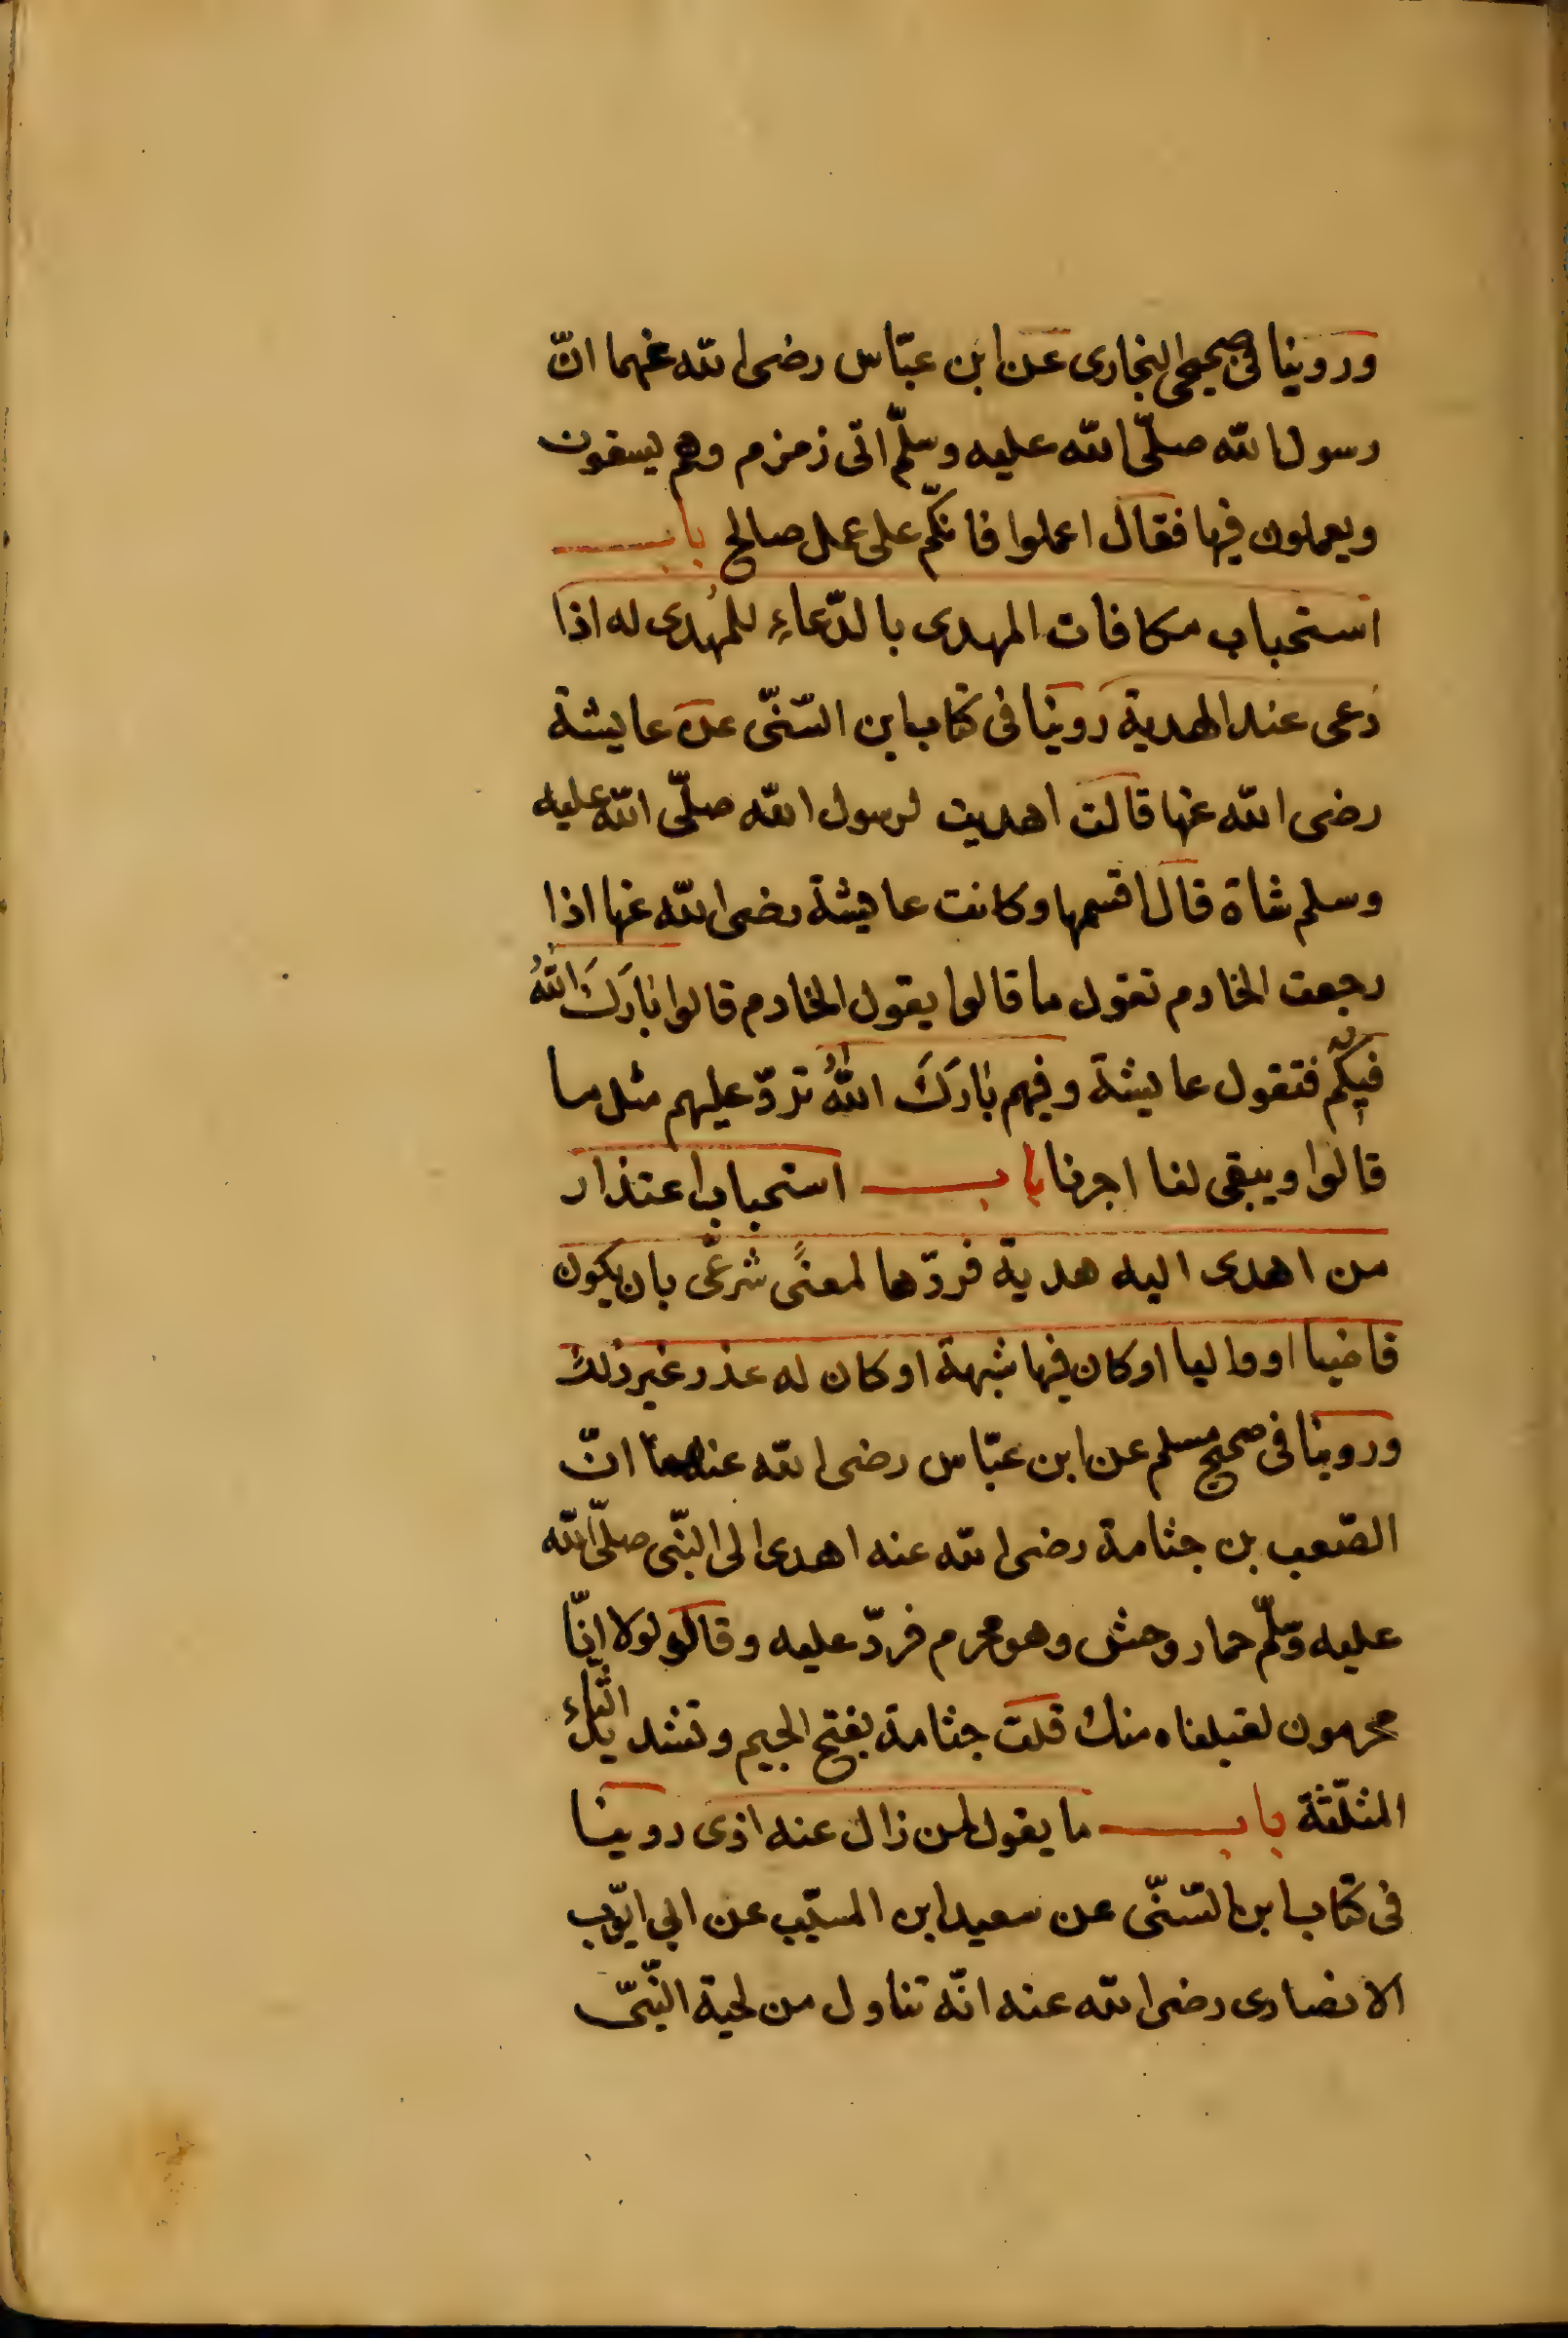 وروينا فى صحيحى البخارى عن ابن عبّاس رضى الله عنهما انّ
رسول الله صلّى الله عليه وسلّم اتى زمزم وهم يسقون
ويعملون فيها فقال اعملوا فانكّم على عمل صالح باب
استحباب مكافات المهدى بالدّعاءِ للمُهدى له اذا
دعى عند الهدية روينا فى كتاب ابن السّنّى عن عايشة
رضى الله عنها قالت اهديت لرسول الله صلّى الله عليه
وسلم شاة قال اقسمها وكانت عايشة رضى الله عنها اذا
رجعت الخادم تقول ما قالوا يقول الخادم قالوا بَارَكَ اللهُ
فيكم فتقول عايشة وفيهم بَارَكَ اللهُ تردّ عليهم مثل ما
قالوا ويبقى لنا اجرنا باب استحباب اعتذار
من اهدى اليه هدية فردّها لمعنًى شرعّى بان يكون
قاضيا او واليا او كان فيها شبهة او كان له عذر غير ذلك
وروينا فى صحيح مسلم عن ابن عبّاس رضى الله عنهما انّ
الصّعب بن جثامة رضى الله عنه اهدى الى النّبّى صلّى الله
عليه وسلّم حمار وحش وهو محرم فردّ عليه وقالو لولا انّا
محرمون لقبلناه منك قلت جثامة بفتح الجيم وتشديد الثاء
المثلّثة باب ما يقول لمن زال عنه اذى روينا
فى كتاب ابن السّنّى عن سعيد ابن المسيّب عن ابى ايّوب
الانصارى رضى الله عنه انّه تناول من لحية النّبىّ